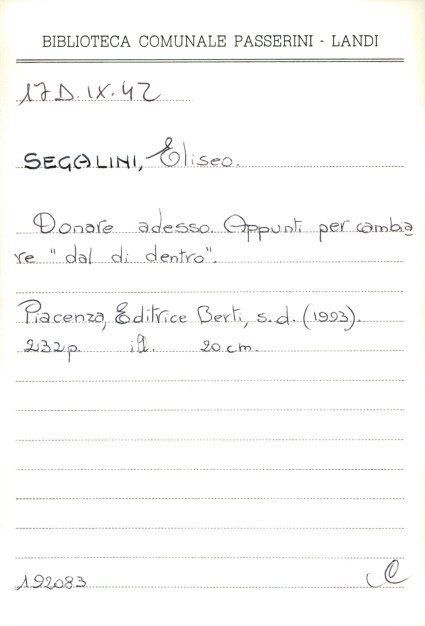 BIBLIOTECA COMUNALE PASSERINI - LANDI
17D.IX.42
SEGALINI, Eliseo.
Donare adesso. Appunti per cambia
re "dal di dentro".
Piacenza, Editrice Berti, s.d. (1993).
232p. ill. 20 cm.
192083